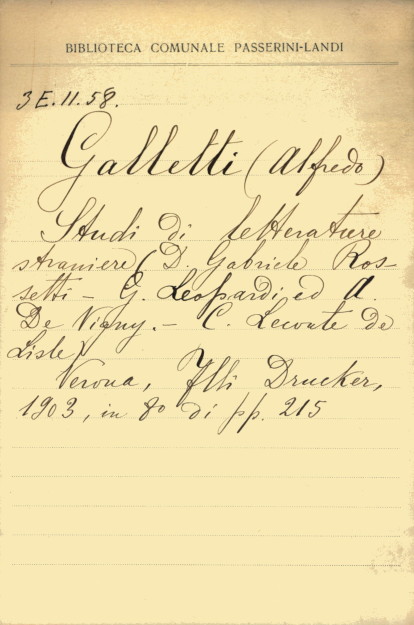 BIBLIOTECA COMUNALE PASSERINI-LANDI
3E.11.58.
Galletti (Alfredo)
Studi di letterature
straniere (D. Gabriele Ros-
setti - G. Leopardi ed A.
De Vigny. - C. Leconte de
Lisle)
Verona, Flli Drucker,
1903, in 8o di pp. 215